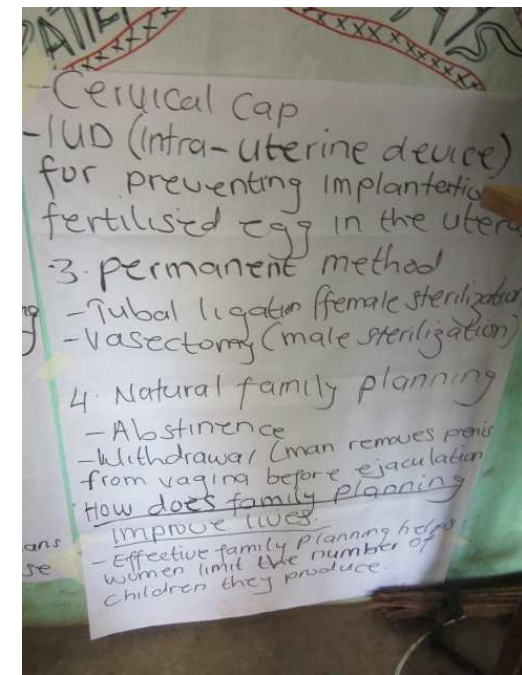 - Cervical cap
- IUD (Intra-uterine device)
for preventing Implantatio
fertilised egg in the uteru
3. permanent method
- Tubal ligation (female sterilization
- Vasectomy (male sterilization)
4. Natural family planning
- Abstinence
- Withdrawal (man removes penis
from vagina before ejaculation
How does family planning
improve lives.
- Effective family planning helps
women limit the number of
children they produce.
ans
se